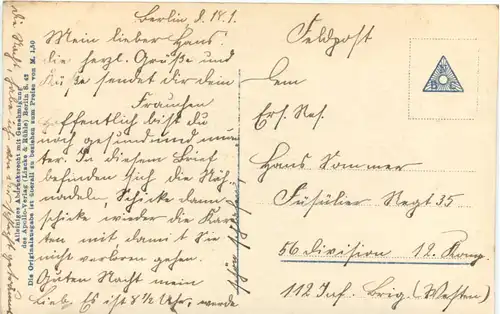 Berlin d. 18.1.
Mein lieber Hans!
die herzl. Grüße und
Küße sendet dir dein
Frauchen
hoffentlich bist du
noch gesund und mun-
ter. In diesem Brief
befinden sich die Näh-
nadeln, Schicke dann
schicke wieder die Kar-
ten mit damit Sie
nicht verloren gehen.
Guten Nacht mein
Lieb. Es ist 8½ Uhr, werde
Feldpost
dem
Ers. Res.
Hans Sommer
Füsilier Regt 35
56 Division 12. Komp.
112 Inf. Brig. (Westen)
Alleiniger Abdrucksrecht mit Genehmigung
des Apollo-Verlag (Liscke & Rühle) Berlin S. 42
Die Originalausgabe ist überall zu beziehen zum Preise von M. 1,50